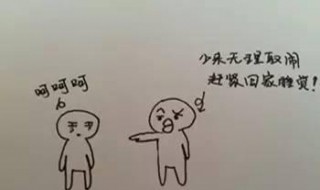 呵呵呵
少来无理取闹
赶紧回家睡觉!